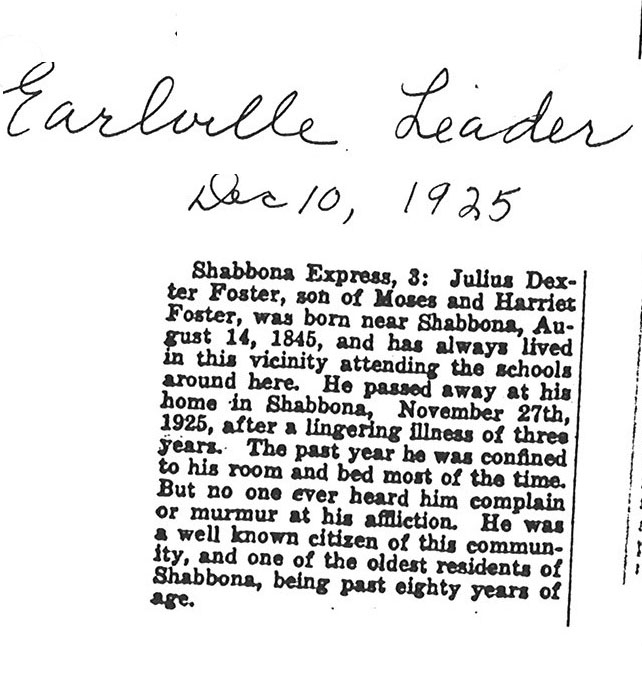 Earlville Leader
Dec 10, 1925
Shabbona Express, 3: Julius Dex-
ter Foster, son of Moses and Harriet
Foster, was born near Shabbona, Au-
gust 14, 1845, and has always lived
in this vicinity attending the schools
around here. He passed away at his
home in Shabbona, November 27th,
1925, after a lingering illness of three
years. The past year he was confined
to his room and bed most of the time.
But no one ever heard him complain
or murmur at his affliction. He was
a well known citizen of this commun-
ity, and one of the oldest residents of
Shabbona, being past eighty years of
age.